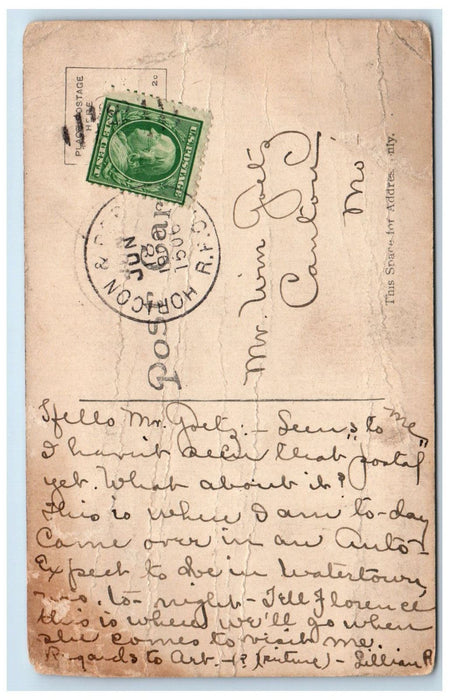 PLACE POSTAGE
HERE
U.S. POSTAGE
ONE CENT
HORICON & R.P.O.
JUN
21
Post Card
This Space for Address Only.
Mr. Wm Goetz
Canton
Mo
Hello Mr. Goetz:- Seems to "me"
I havn't seen that postal
yet. What about it?
This is where I am to-day
Came over in an Auto-
Expect to be in Watertown,
Wis. to-night- Tell Florence
this is where we'll go when
she comes to visit me.
Regards to Art. - (picture) - Lillian R